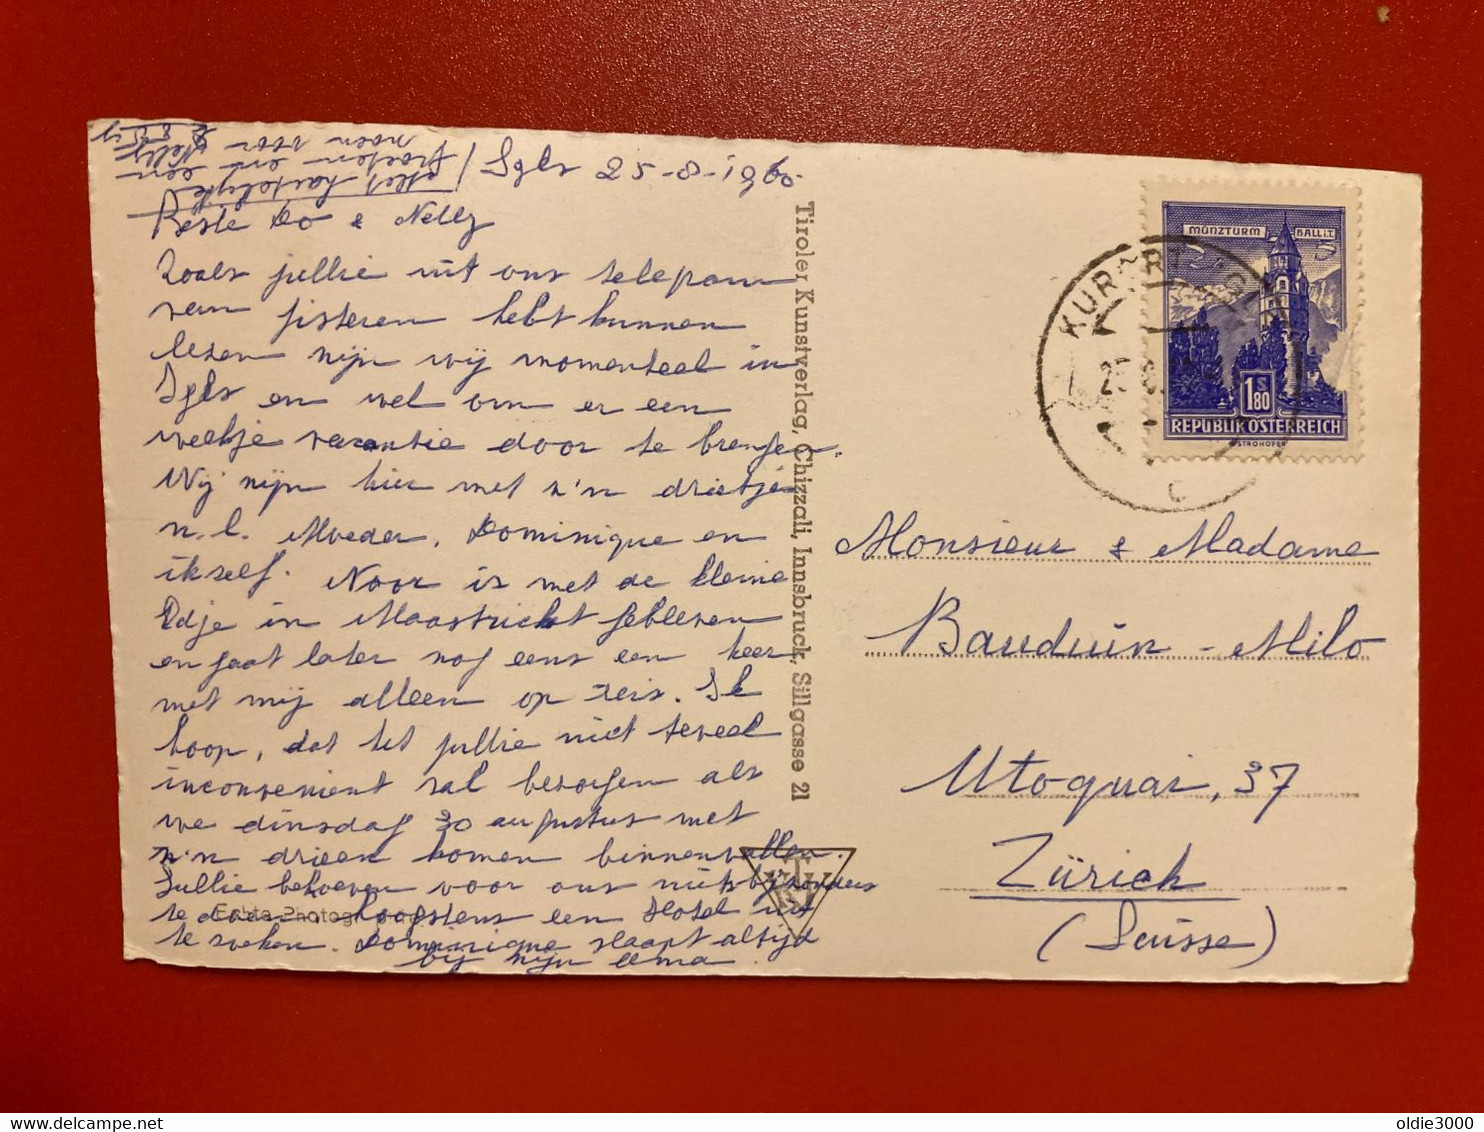 Igls 25-8-1960
Beste Do & Nelly
Zoals jullie uit ons telegram
van gisteren hebt kunnen
lezen zijn wij momenteel in
Igls en wel om er een
weekje vacantie door te brengen.
Wij zijn hier met z'n drietjes
n.l. Moeder, Dominique en
ikzelf. Noor is met de kleine
Edje in Maastricht gebleven
en gaat later nog eens een keer
met mij alleen op reis. Ik
hoop, dat het jullie niet teveel
inconvenient zal bezorgen als
we dinsdag 30 augustus met
z'n drieen komen binnenvallen.
Jullie behoeven voor ons niets bijzonders
te doen, hoogstens een Hotel uit
te zoeken. Dominique slaapt altijd
bij zijn oma.
Met hartelijke
groeten en een
zoen voor Nelly
Echte Photographie
Tiroler Kunstverlag, Chizzali, Innsbruck, Sillgasse 21
TKV
KURORT IGLS
25
C
MÜNZTURM HALL i.T.
1 S 80
REPUBLIK ÖSTERREICH
STROHOFER
Monsieur & Madame
Bauduin - Milo
Utoquai, 37
Zürich
(Suisse)
oldie3000
delcampe.net